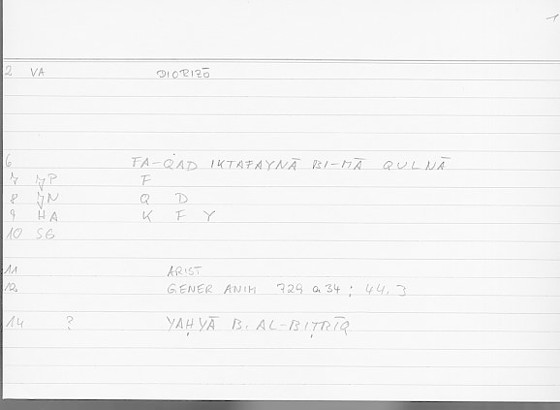 1
2 VA DIORIZŌ
6 FA-QAD IKTAFAYNĀ BI-MĀ QULNĀ
7 JP F
8 JN Q D
9 HA K F Y
10 SG
11 ARIST
12 GENER ANIM 729 a 34 ; 44.3
14 ? YAḤYĀ B. AL-BIṬRĪQ